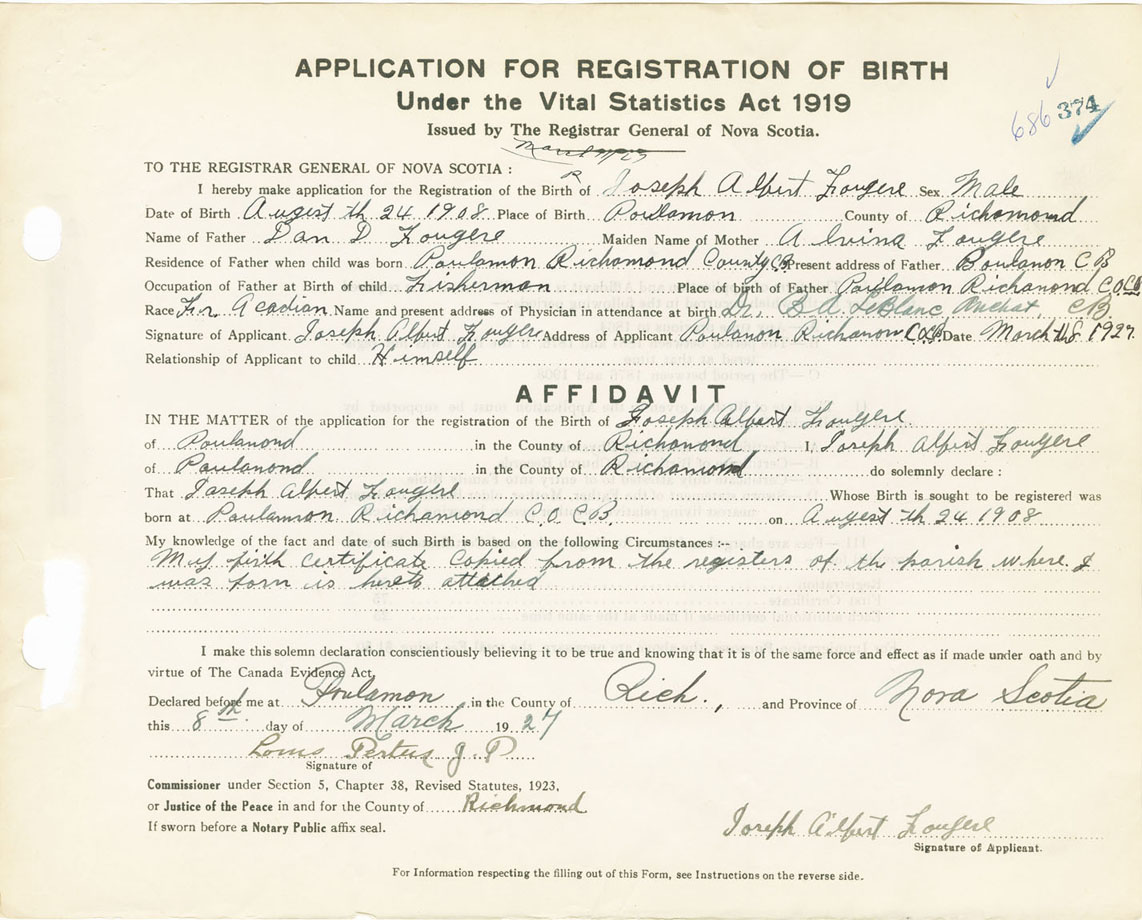 APPLICATION FOR REGISTRATION OF BIRTH
Under the Vital Statistics Act 1919
686 374
Issued by The Registrar General of Nova Scotia.
TO THE REGISTRAR GENERAL OF NOVA SCOTIA :
I hereby make application for the Registration of the Birth of Joseph Albert Fougere Sex Male
Date of Birth Augest th 24 1908 Place of Birth Poulamon County of Richamond
Name of Father Dan D Fougere Maiden Name of Mother Alvina Fougere
Residence of Father when child was born Poulamon Richamond County CB Present address of Father Boulanon C B
Occupation of Father at Birth of child Fisherman Place of birth of Father Poulamon Richanond C.O CB
Race Fr. Acadian Name and present address of Physician in attendance at birth Dr. B.A. LeBlanc, C.B.
Signature of Applicant Joseph Albert Fougere Address of Applicant Poulanon Richanon Co CB Date March th 8 1927.
Relationship of Applicant to child Himself
AFFIDAVIT
IN THE MATTER of the application for the registration of the Birth of Joseph Albert Fougere
of Poulanond in the County of Richanond I, Joseph Albert Fougere
of Paulanond in the County of Richamond do solemnly declare :
That Joseph Albert Fougere Whose Birth is sought to be registered was
born at Poulamon Richamond C.O.C.B. on Augest th 24 1908
My knowledge of the fact and date of such Birth is based on the following Circumstances :--
My birth certificate copied from the registers of the parish where I
was born is hereto attached
I make this solemn declaration conscientiously believing it to be true and knowing that it is of the same force and effect as if made under oath and by
virtue of The Canada Evidence Act,
Declared before me at Poulamon in the County of Rich., and Province of Nova Scotia
this 8th day of March 1927
Louis J P
Signature of
Commissioner under Section 5, Chapter 38, Revised Statutes, 1923,
or Justice of the Peace in and for the County of Richmond
If sworn before a Notary Public affix seal.
Joseph Albert Fougere
Signature of Applicant.
For Information respecting the filling out of this Form, see Instructions on the reverse side.